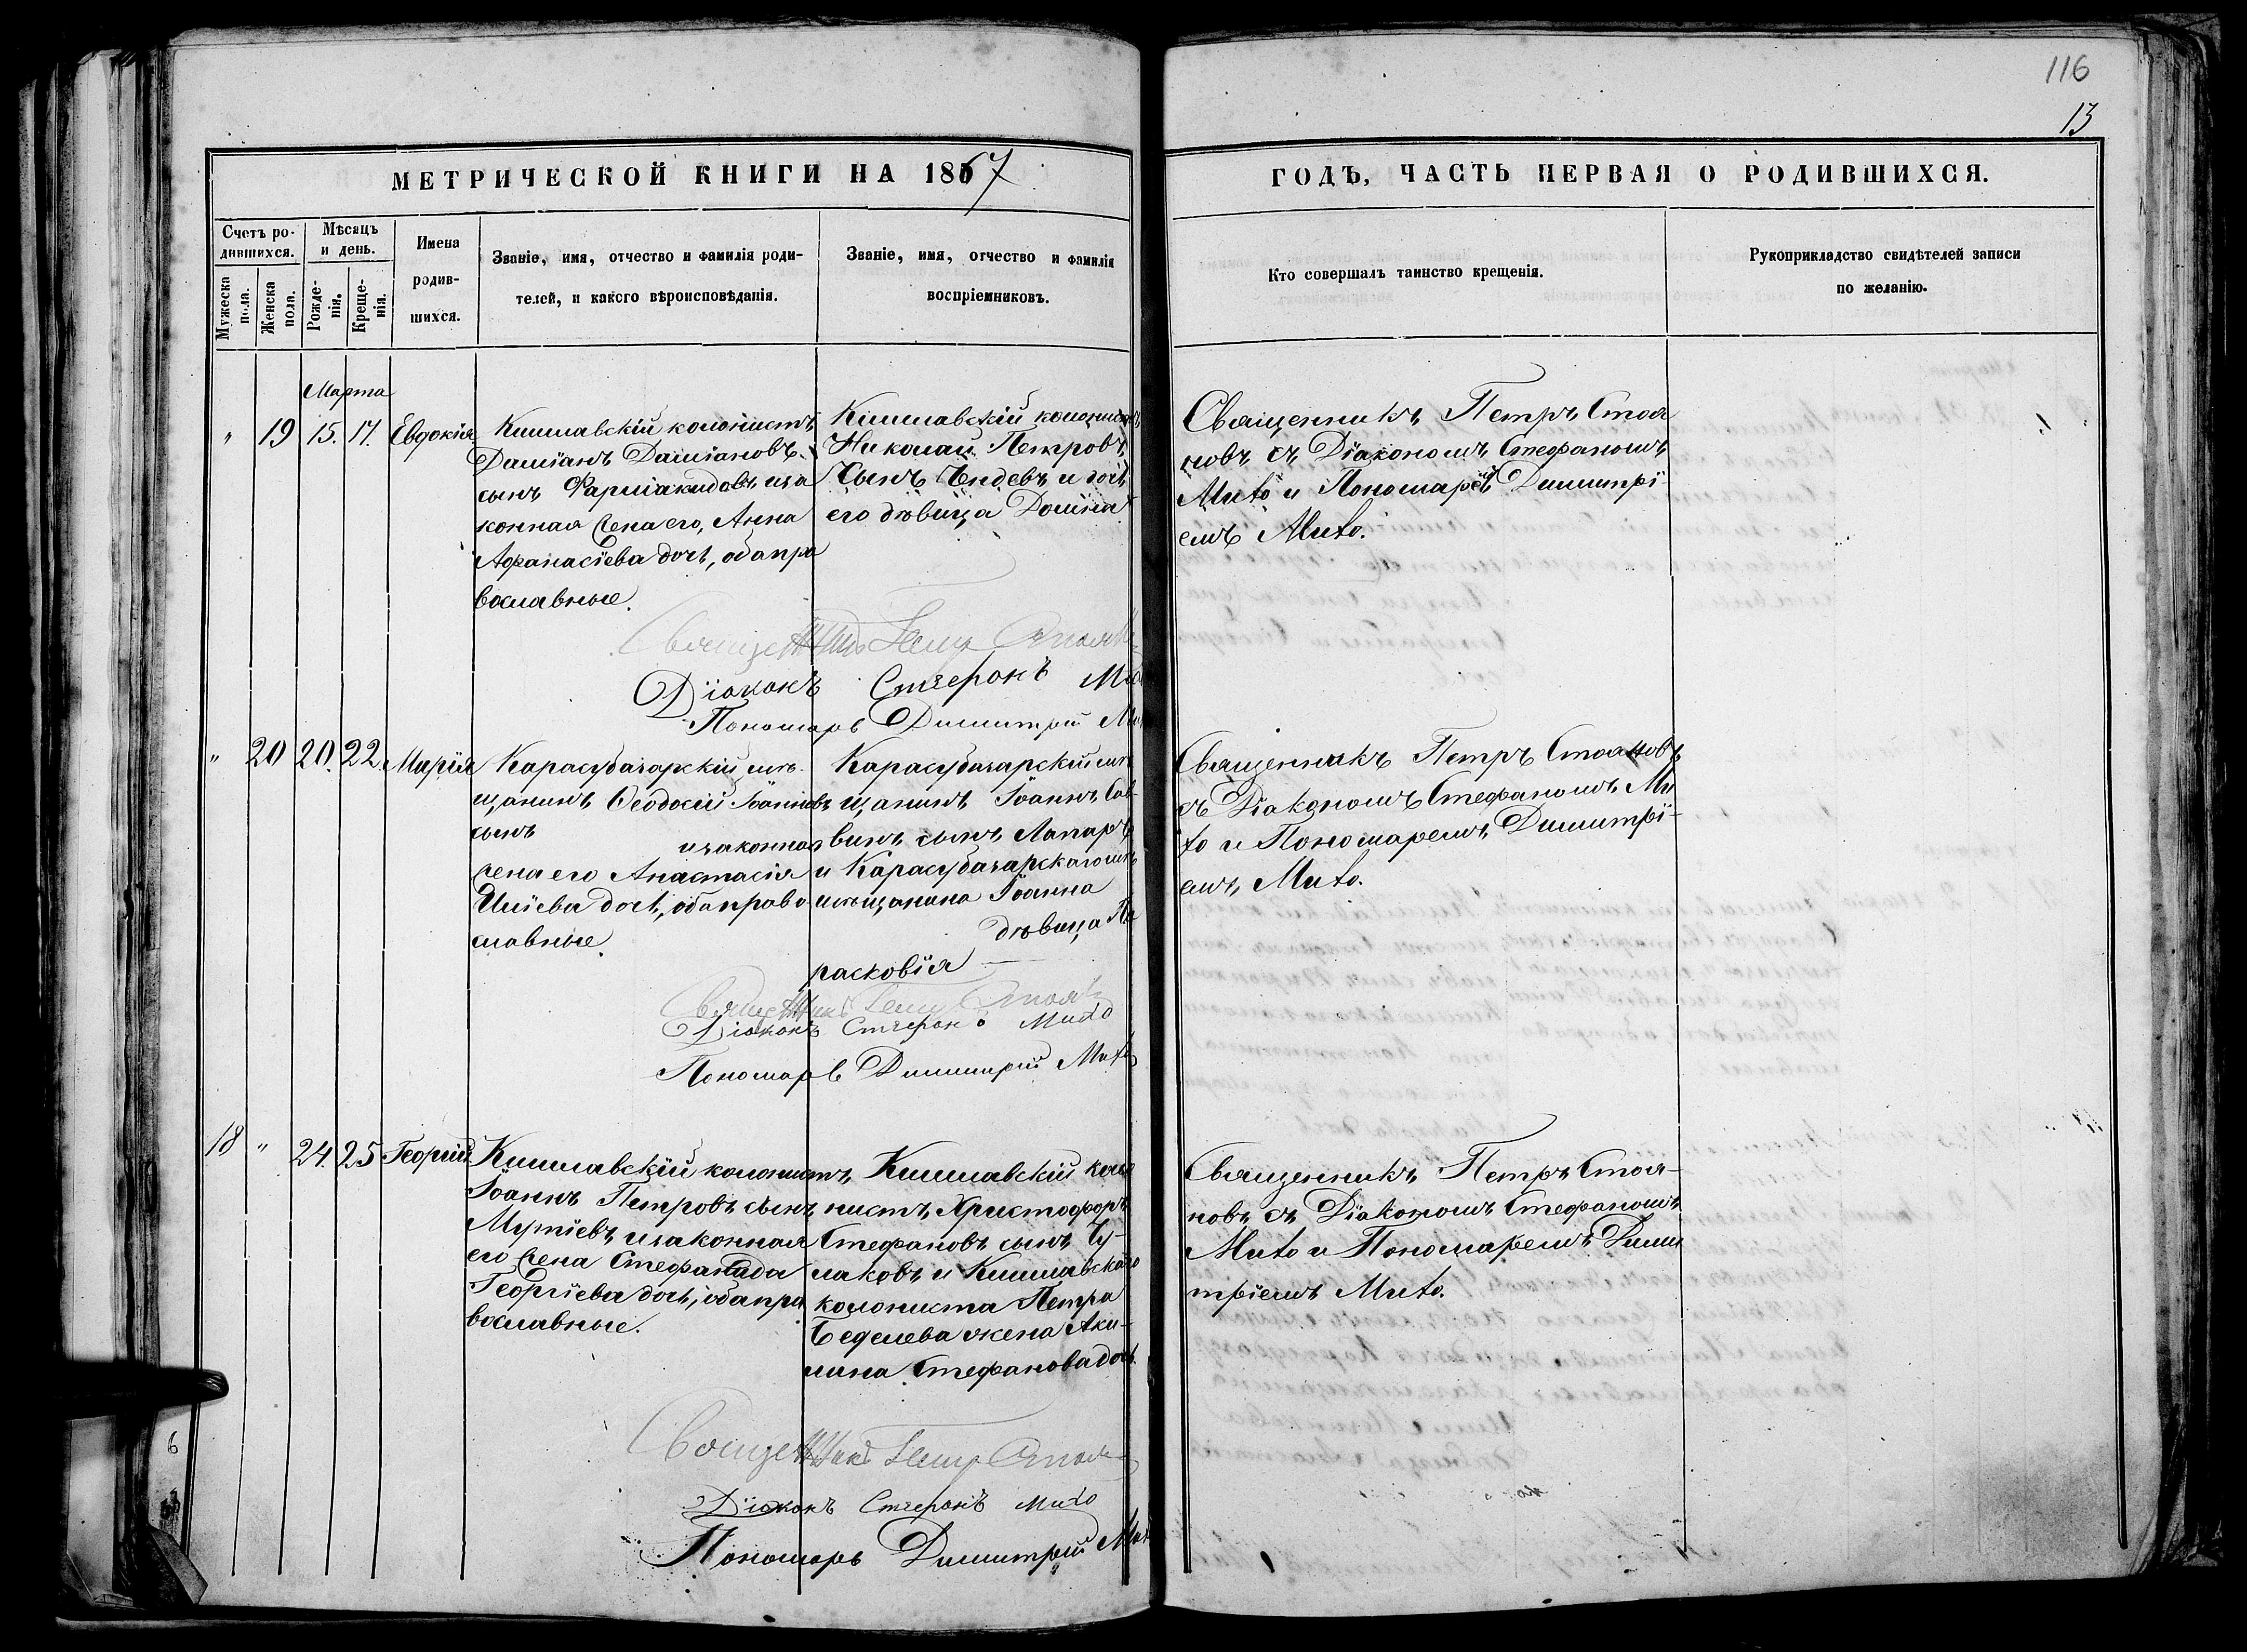 116
13
МЕТРИЧЕСКОЙ КНИГИ НА 1867
ГОДЪ, ЧАСТЬ ПЕРВАЯ О РОДИВШИХСЯ.
Счетъ ро-
дившихся.
Мужеска
пола.
Женска
пола.
Мѣсяцъ
и день.
Рожде-
нія.
Креще-
нія.
Имена
родив-
шихся.
Званіе, имя, отчество и фамилія роди-
телей, и какого вѣроисповѣданія.
Званіе, имя, отчество и фамилія
воспріемниковъ.
Кто совершалъ таинство крещенія.
Рукоприкладство свидѣтелей записи
по желанію.
Марта
" 19 15. 17. Евдокія
Кишлавскій колонистъ
Даміанъ Даміановъ
сынъ Фармакидовъ и за
конная жена его, Анна
Афанасіева дочь, оба пра
вославные.
Кишлавскій колонистъ
Николай Петровъ
сынъ Ендевъ и дочь
его дѣвица Домна
Священникъ Петръ Стоя
новъ съ Діакономъ Стефаномъ
Мито и Пономаремъ Димитрі-
емъ Мито.
Священникъ Петр Стоян
Діаконъ Стефанъ
Пономарь Димитрій
" 20 20. 22. Марія
Карасубазарскій мѣ-
щанинъ Ѳеодосій Іоанновъ
сынъ
и законная
жена его Анастасія
Иліева дочь, оба право
славные.
Карасубазарскій мѣ
щанинъ Іоаннъ Сав-
винъ сынъ Лапаръ
и Карасубазарскаго мѣ
мѣщанина Іоанна
дѣвица Па
расковія
Священникъ Петръ Стояновъ
съ Діакономъ Стефаномъ Ми
то и Пономаремъ Димитрі-
емъ Мито.
Священникъ Петр Стоян
Діаконъ Стефанъ Мито
Пономарь Димитрій Мито
18 " 24. 25 Георгій
Кишлавскій колонистъ
Іоаннъ Петровъ сынъ
Мутіевъ и законная
его жена Стефанида
Георгіева дочь, оба пра
вославные.
Кишлавскій коло
нистъ, Христофоръ
Стефановъ сынъ Чу-
лаковъ и Кишлавскаго
колониста Петра
Беделева жена Аки-
лина Стефанова дочь.
Священникъ Петръ Стоя-
новъ съ Діакономъ Стефаномъ
Мито и Пономаремъ Дими
тріемъ Мито.
Священникъ Петр Стоян
Діаконъ Стефанъ Мито
Пономарь Димитрій
6